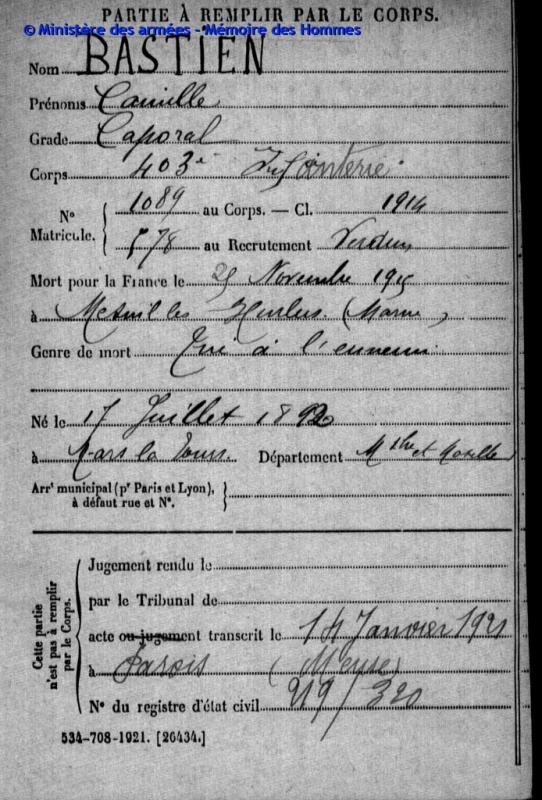 PARTIE À REMPLIR PAR LE CORPS.
© Ministère des armées - Mémoire des Hommes
Nom BASTIEN
Prénoms Camille
Grade Caporal
Corps 403e Infanterie
N° Matricule. { 1089 au Corps. — Cl. 1914
778 au Recrutement Verdun
Mort pour la France le 25 Novembre 1915
à Mesnil les Hurlus (Marne)
Genre de mort Tué à l'ennemi
Né le 17 Juillet 1892
à Mars la Tours. Département Mthe et Moselle
Arrt municipal (pr Paris et Lyon), à défaut rue et N°. }
Cette partie n'est pas à remplir par le Corps. {
Jugement rendu le
par le Tribunal de
acte ou jugement transcrit le 14 Janvier 1921
à Parois (Meuse)
N° du registre d'état civil 219/320
534-708-1921. [26434.]